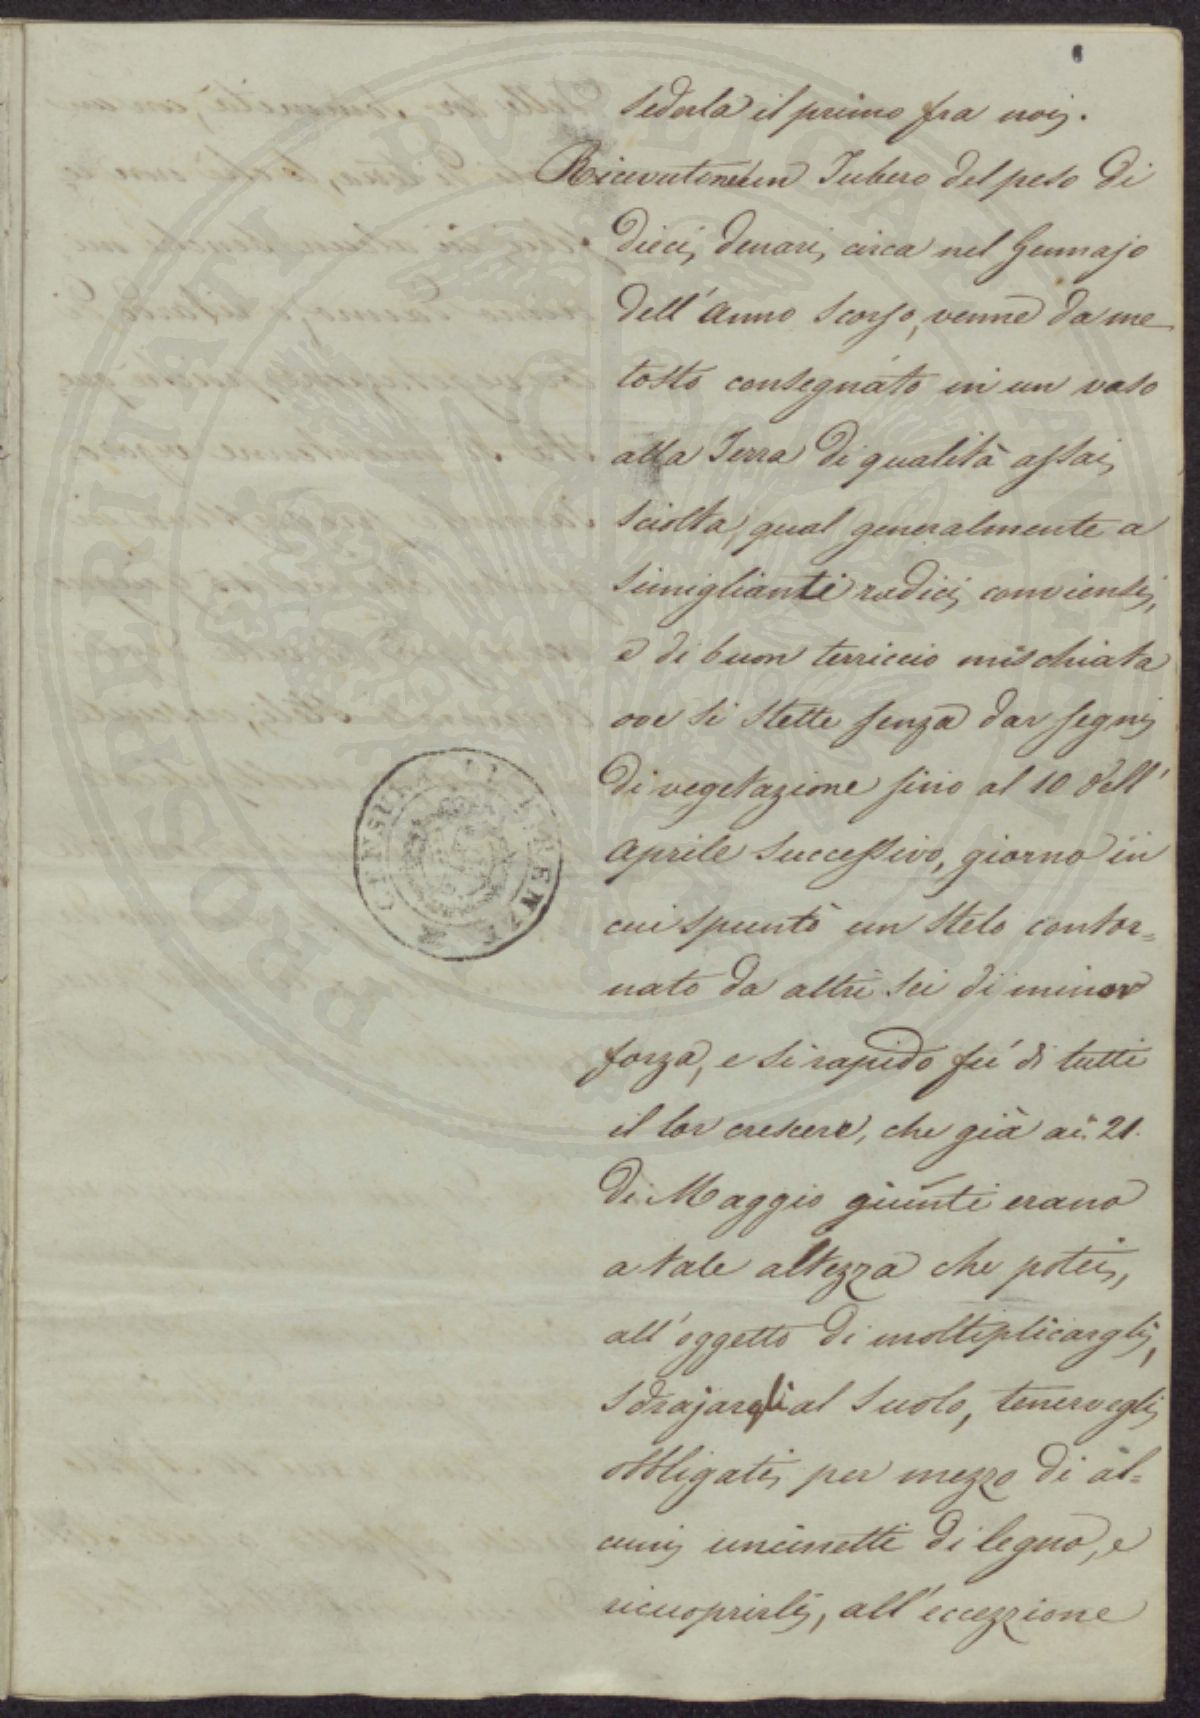 sederla il primo fra noi.
Ricevutone un Tubero del peso di
dieci denari circa nel Gennajo
dell'Anno scorso, venne da me
tosto consegnato in un vaso
alla Terra di qualità assai
sciolta, qual generalmente a
simiglianti radici conviensi,
e di buon terriccio mischiata
ove si stette senza dar segni
di vegetazione fino al 10 dell'
Aprile successivo, giorno in
cui spuntò un stelo contor=
nato da altri sei di minor
forza, e sì rapido fù di tutti
il lor crescere, che già ai 21.
di Maggio giunti erano
a tale altezza che potei,
all'oggetto di moltiplicargli,
sdrajargli al suolo, tenervegli
obbligati per mezzo di al=
cuni uncinetti di legno, e
ricuoprirli, all'eccezzione
PROSPERITATI PUBLICAE AUGENDAE
CENSURA FIRENZE